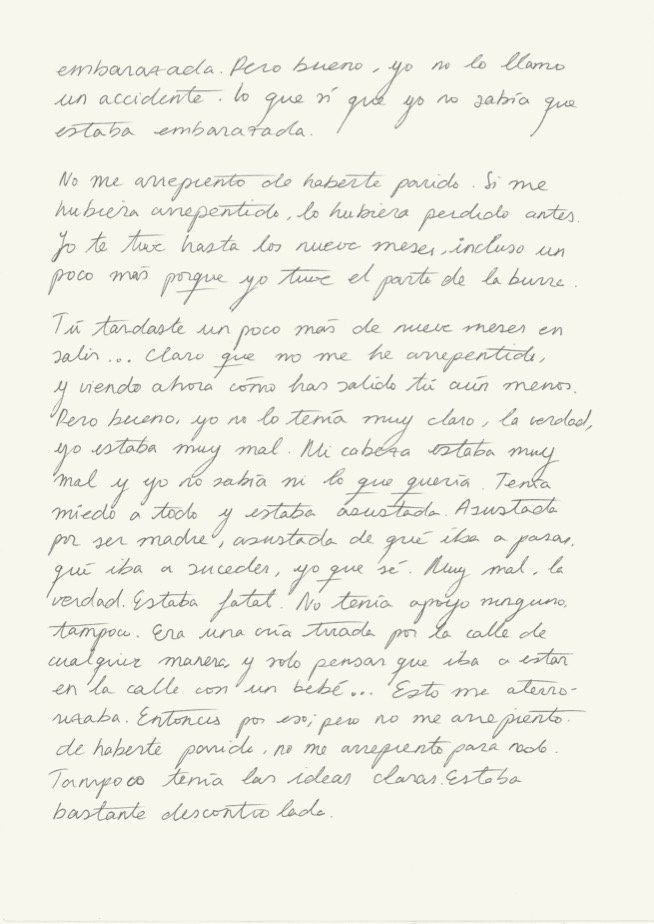 embarazada. Pero bueno, yo no lo llamo
un accidente. Lo que sí que yo no sabía que
estaba embarazada.
No me arrepiento de haberte parido. Si me
hubiera arrepentido, lo hubiera perdido antes.
Yo te tuve hasta los nueve meses, incluso un
poco más porque yo tuve el parto de la burra.
Tú tardaste un poco más de nueve meses en
salir... Claro que no me he arrepentido,
y viendo ahora cómo has salido tú aún menos.
Pero bueno, yo no lo tenía muy claro, la verdad,
yo estaba muy mal. Mi cabeza estaba muy
mal y yo no sabía ni lo que quería. Tenía
miedo a todo y estaba asustada. Asustada
por ser madre, asustada de qué iba a pasar,
qué iba a suceder, yo que sé. Muy mal, la
verdad. Estaba fatal. No tenía apoyo ninguno,
tampoco. Era una cría tirada por la calle de
cualquier manera y solo pensar que iba a estar
en la calle con un bebé... Esto me aterro-
rizaba. Entonces por eso; pero no me arrepiento
de haberte parido, no me arrepiento para nada.
Tampoco tenía las ideas claras. Estaba
bastante descontrolada.